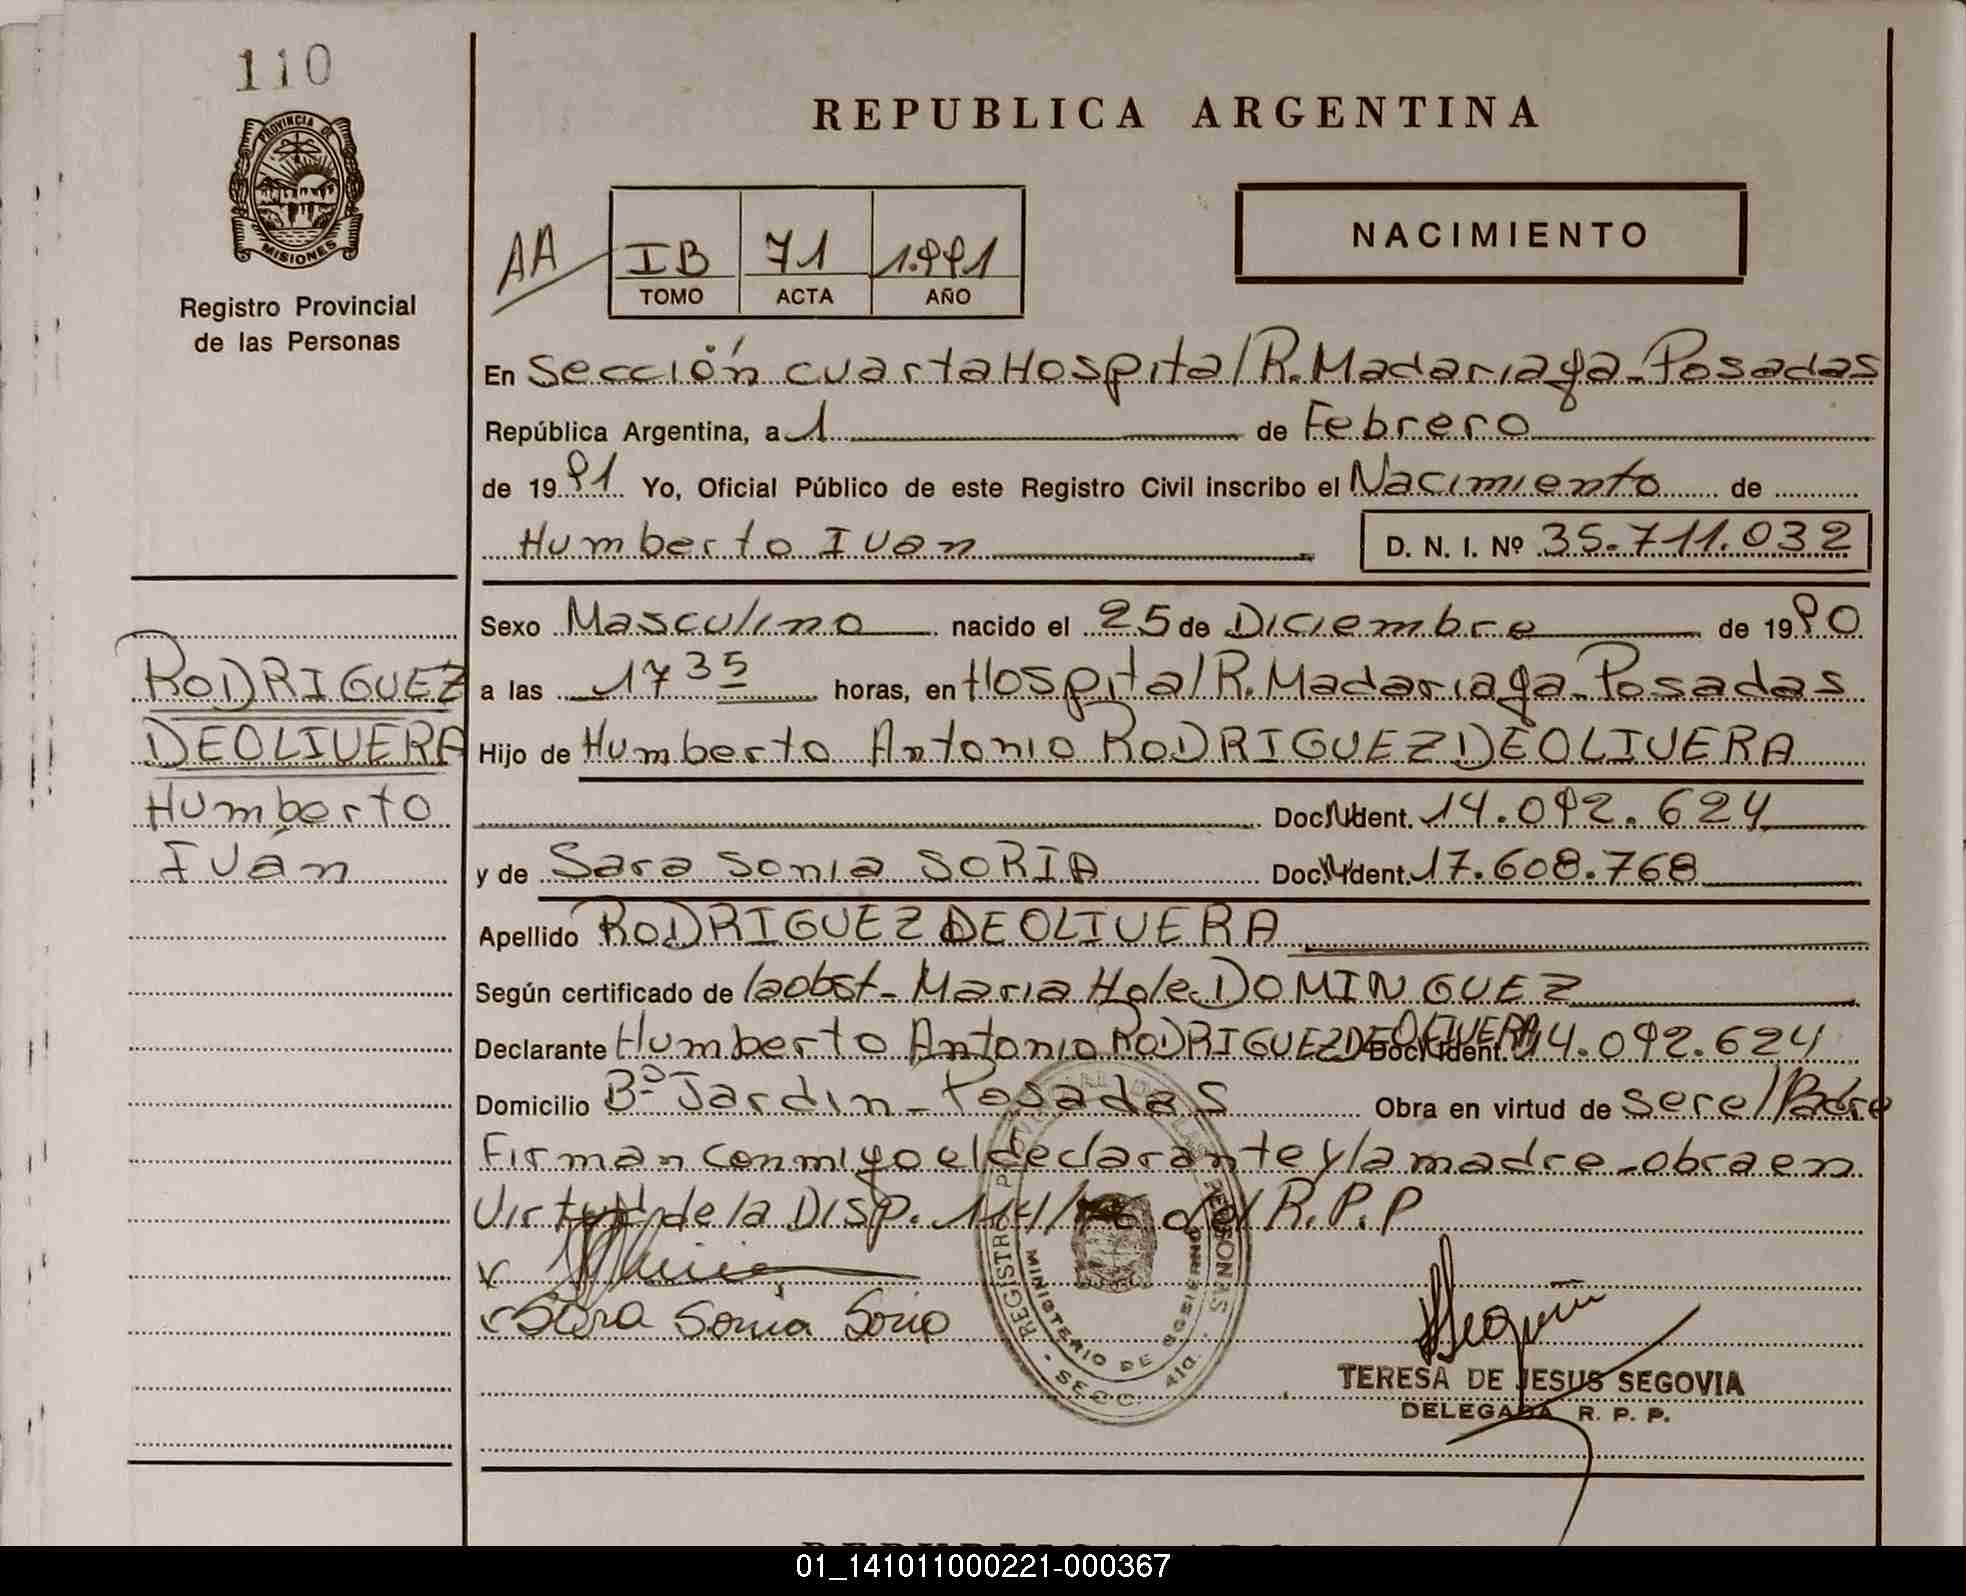 110
PROVINCIA DE
MISIONES
Registro Provincial
de las Personas
REPUBLICA ARGENTINA
AA
IB 71 1.991
TOMO ACTA AÑO
NACIMIENTO
En Sección cuarta Hospital R. Madariaga - Posadas
República Argentina, a 1 de Febrero
de 1991 Yo, Oficial Público de este Registro Civil inscribo el Nacimiento de
Humberto Ivan D. N. I. Nº 35.711.032
RODRIGUEZ
DEOLIVERA
Humberto
Iván
Sexo Masculino nacido el 25 de Diciembre de 1990
a las 17 35 horas, en Hospital R. Madariaga - Posadas
Hijo de Humberto Antonio RODRIGUEZ DEOLIVERA
Doc. Ident. 14.092.624
y de Sara Sonia SORIA Doc. Ident. 17.608.768
Apellido RODRIGUEZ DEOLIVERA
Según certificado de la obst - Maria Hole DOMINGUEZ
Declarante Humberto Antonio RODRIGUEZ DEOLIVERA Doc. Ident. 14.092.624
Domicilio Bº Jardin - Posadas Obra en virtud de ser el Padre
Firman conmigo el declarante y la madre - obra en
Virtud de la DISP. 114/ del R.P.P
Sara Sonia Soria
REGISTRO PROVINCIAL DE LAS PERSONAS
MINISTERIO DE GOBIERNO
SECC. 4ta.
TERESA DE JESUS SEGOVIA
DELEGADA R. P. P.
01_141011000221-000367